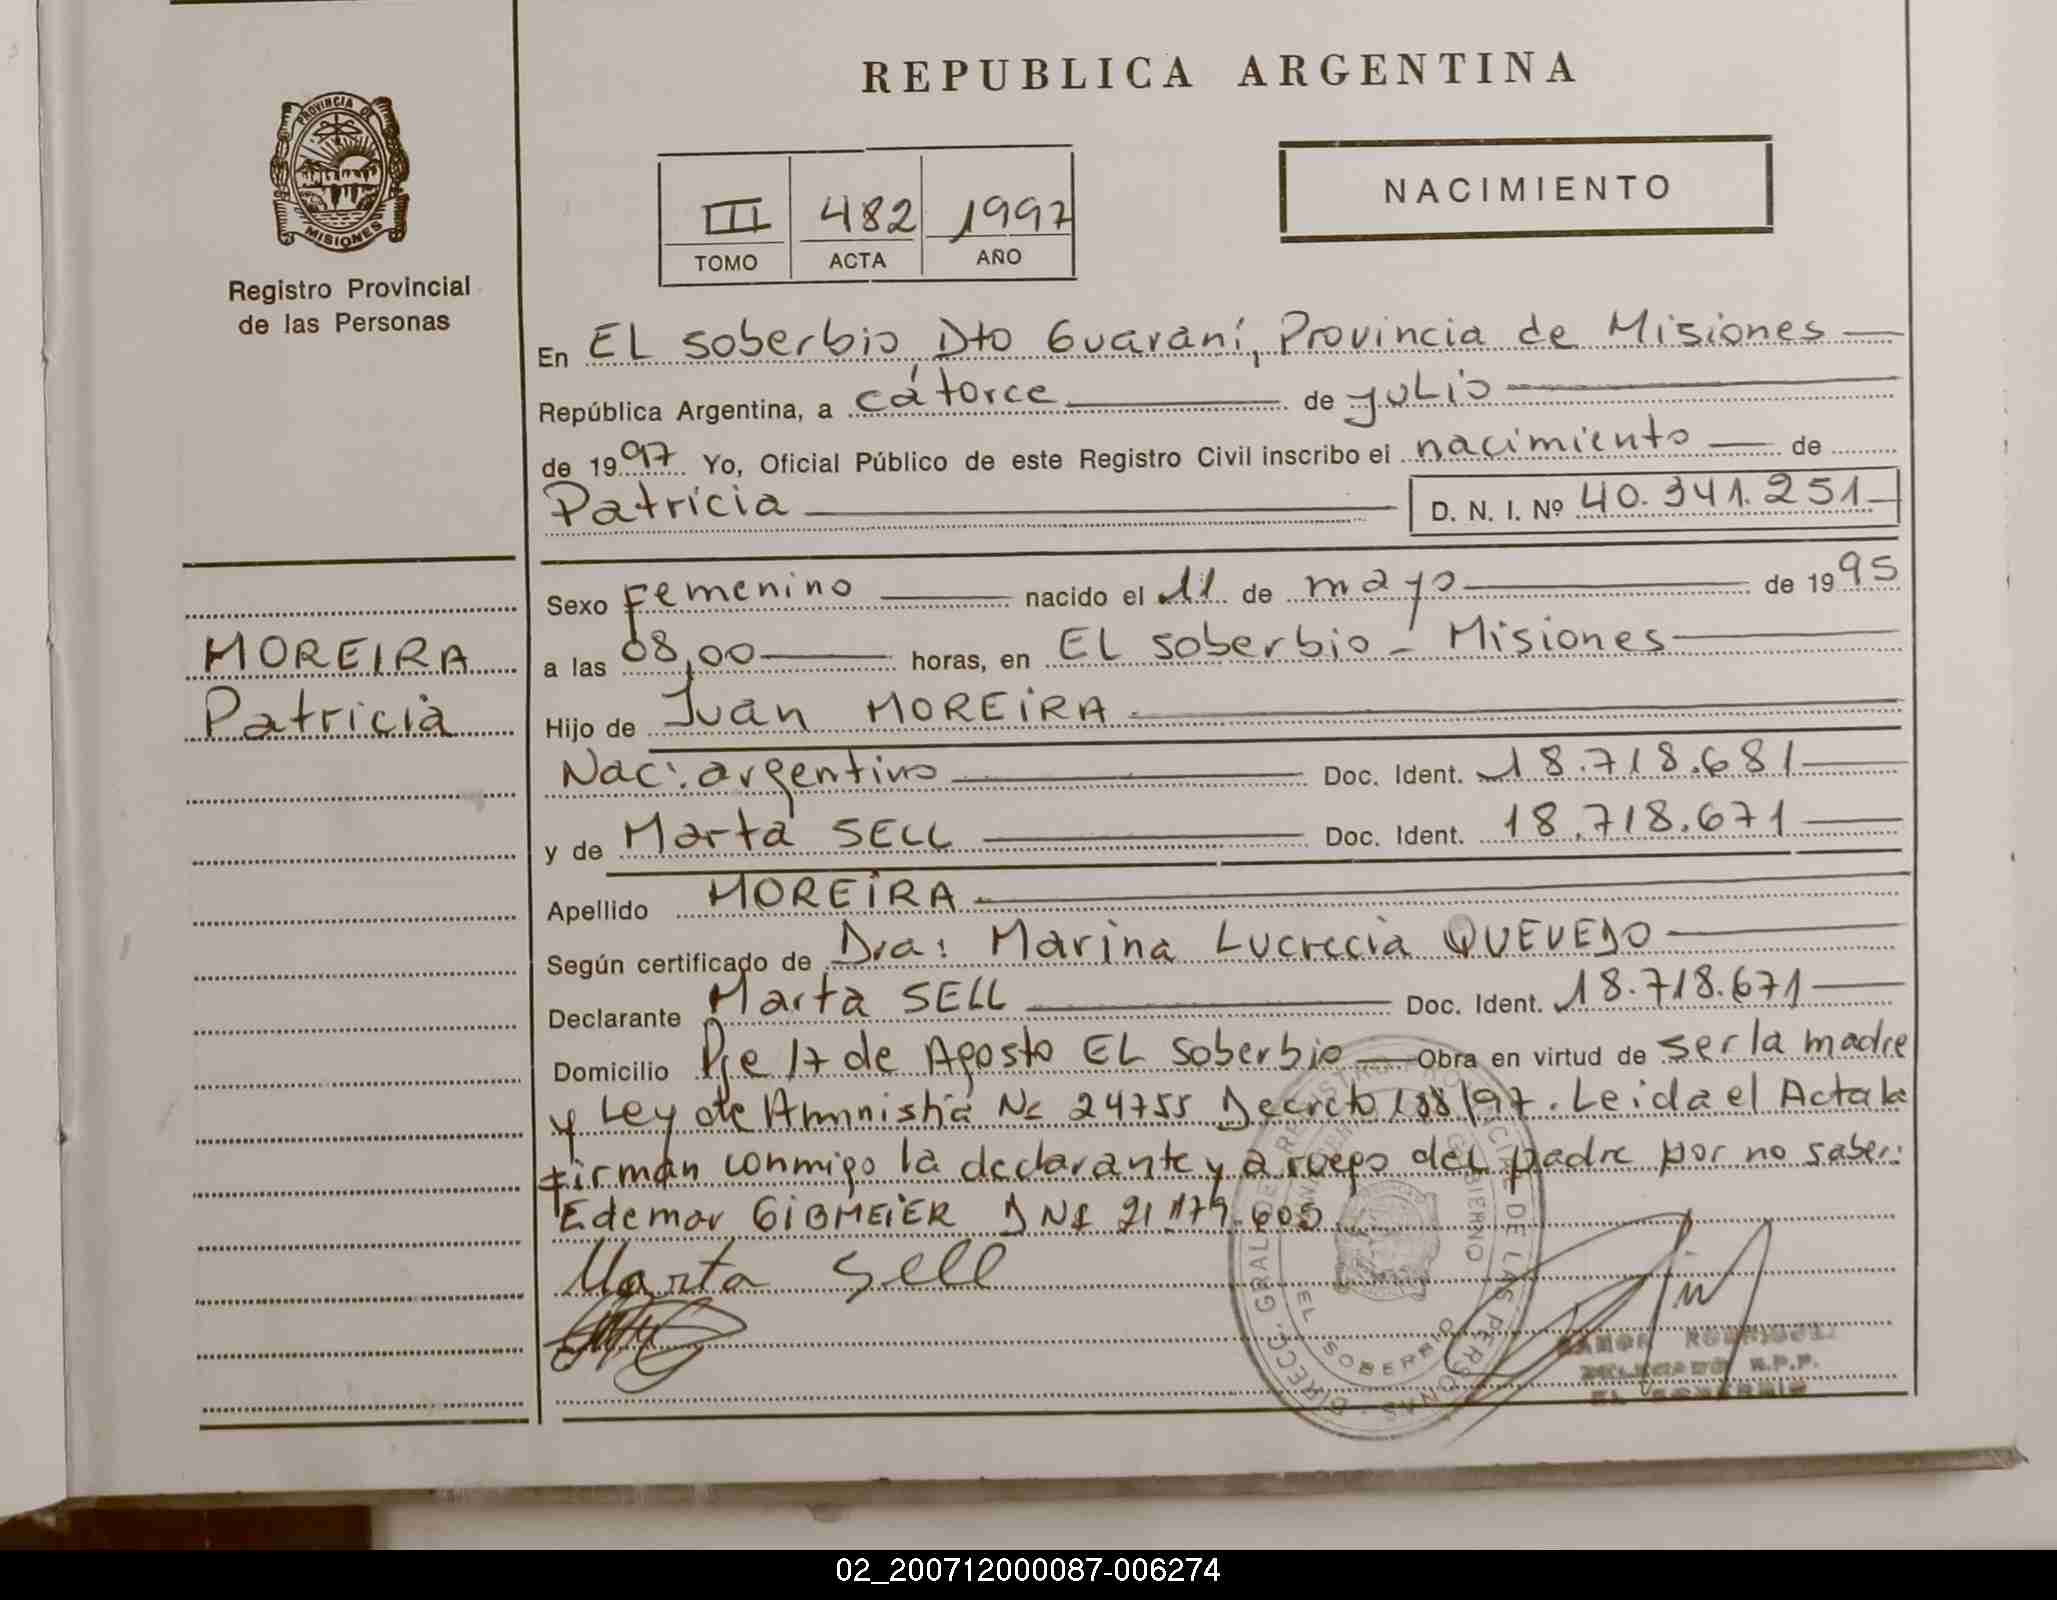 REPUBLICA ARGENTINA
PROVINCIA DE
MISIONES
Registro Provincial
de las Personas
III 482 1997
TOMO ACTA AÑO
NACIMIENTO
En EL Soberbio Dto Guaraní, Provincia de Misiones
República Argentina, a cátorce de julio
de 1997 Yo, Oficial Público de este Registro Civil inscribo el nacimiento de
Patricia D. N. I. Nº 40.341.251
MOREIRA
Patricia
Sexo Femenino nacido el 11 de mayo de 1995
a las 08,00 horas, en EL Soberbio - Misiones
Hijo de Juan MOREIRA
Nac: argentino Doc. Ident. 18.718.681
y de Marta SELL Doc. Ident. 18.718.671
Apellido MOREIRA
Según certificado de Dra: Marina Lucrecia QUEVEDO
Declarante Marta SELL Doc. Ident. 18.718.671
Domicilio Pje 17 de Agosto EL Soberbio Obra en virtud de ser la madre
y Ley de Amnistia Nº 24755 Decreto 188/97. Leida el Acta la
firman conmigo la declarante y a ruego del padre por no saber:
Edemar GIBMEIER DNI 21.179.605
Marta Sell
DIRECC. GRAL. DE REGISTRO PROVINCIAL DE LAS PERSONAS
EL SOBERBIO
RAMON RODRIGUEZ
DELEGADO R.P.P.
EL SOBERBIO
02_200712000087-006274